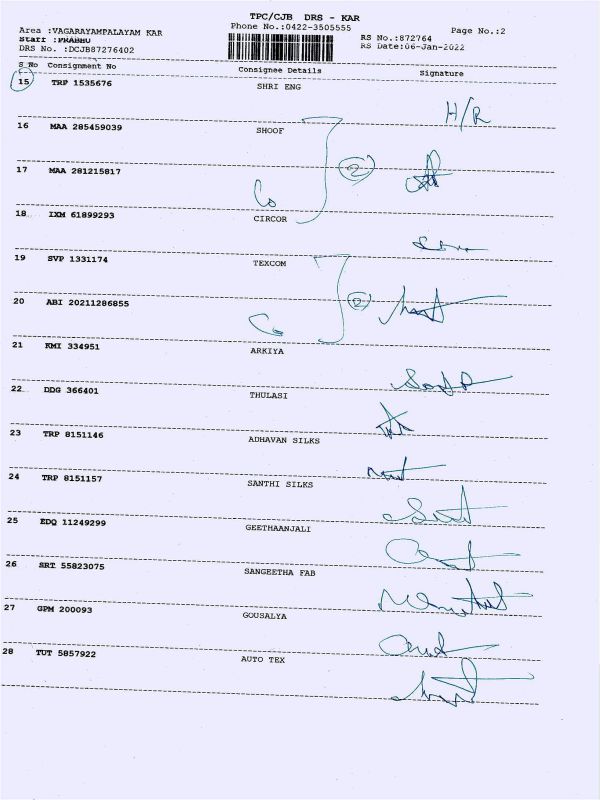 TPC/CJB DRS - KAR
Area :VAGARAYAMPALAYAM KAR Phone No.:0422-3505555 Page No.:2
Staff :PRABHU RS No.:872764
DRS No. :DCJB87276402 RS Date:06-Jan-2022
S_No Consignment No Consignee Details Signature
15 TRP 1535676 SHRI ENG
H/R
16 MAA 285459039 SHOOF
17 MAA 281215817 Co 2
18 IXM 61899293 CIRCOR
19 SVP 1331174 TEXCOM
20 ABI 20211286855 Co 2
21 KMI 334951 ARKIYA
22 DDG 366401 THULASI
23 TRP 8151146 ADHAVAN SILKS
24 TRP 8151157 SANTHI SILKS
25 EDQ 11249299 GEETHAANJALI
26 SRT 55823075 SANGEETHA FAB
27 GPM 200093 GOUSALYA
28 TUT 5857922 AUTO TEX